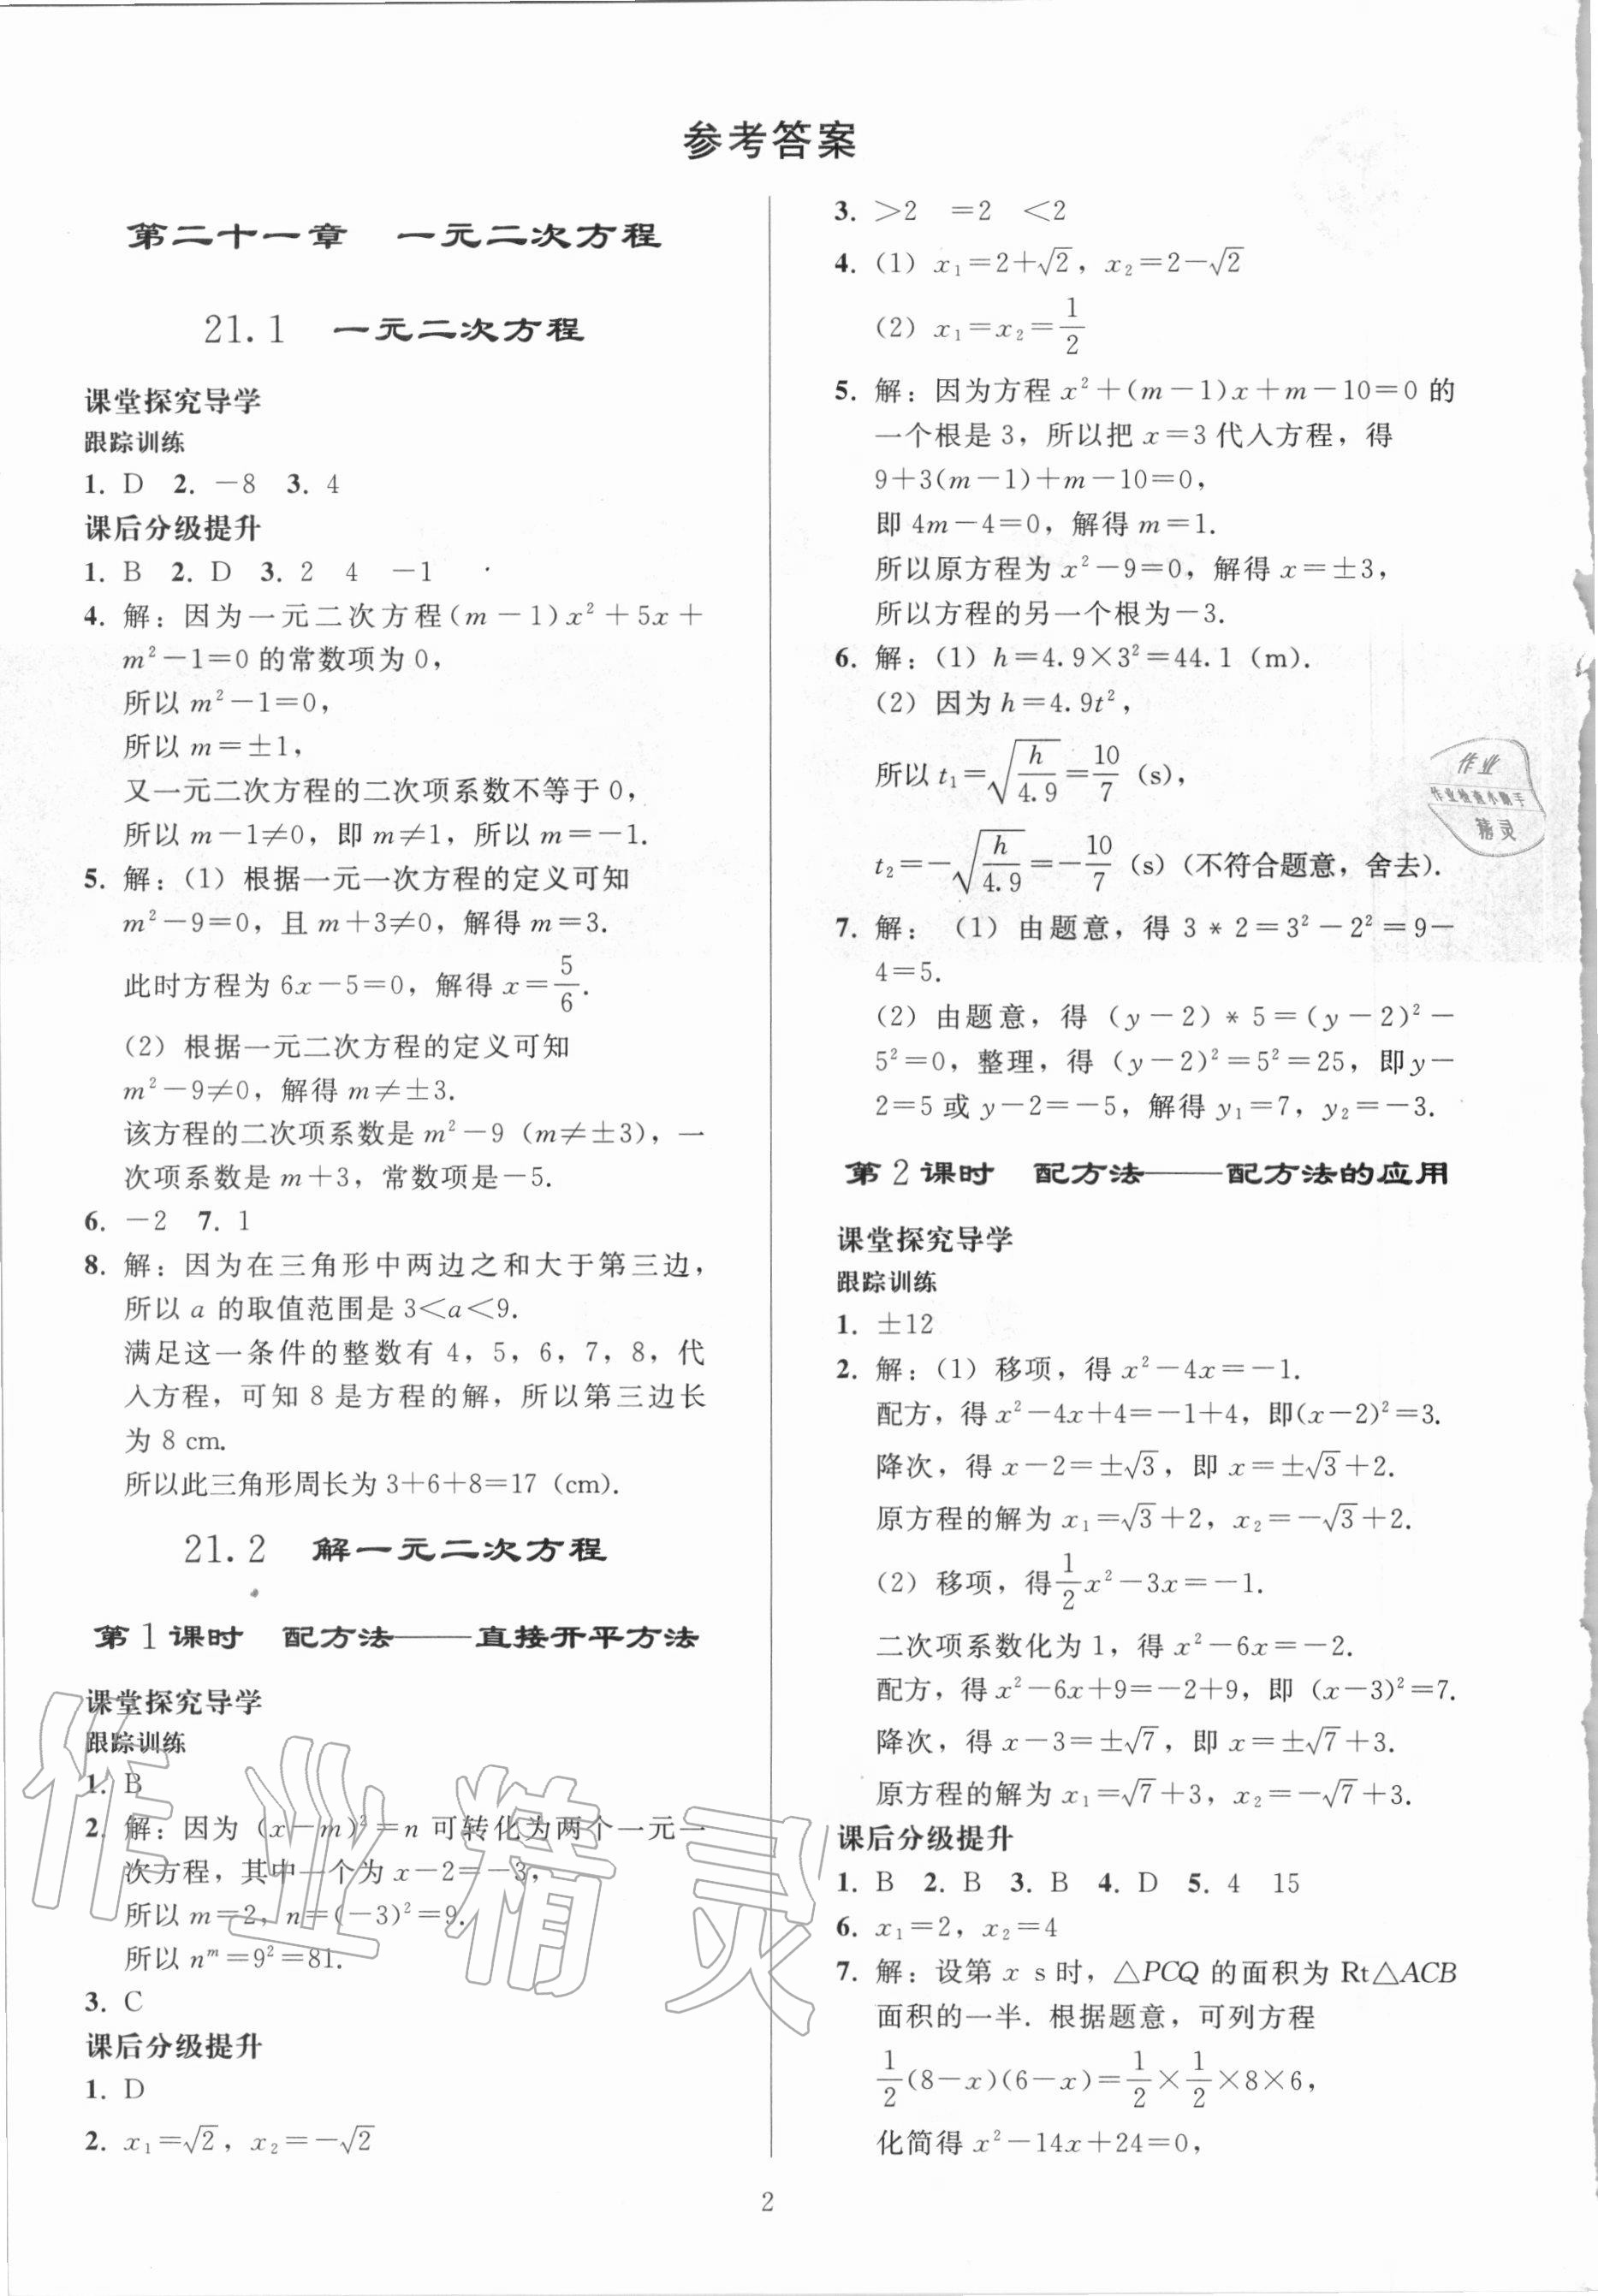 参考答案
第二十一章 一元二次方程
21.1 一元二次方程
课堂探究导学
跟踪训练
1. D 2. －8 3. 4
课后分级提升
1. B 2. D 3. 2 4 －1
4. 解：因为一元二次方程(m－1)x²＋5x＋
m²－1＝0 的常数项为 0，
所以 m²－1＝0，
所以 m＝±1，
又一元二次方程的二次项系数不等于 0，
所以 m－1≠0，即 m≠1，所以 m＝－1.
5. 解：(1) 根据一元一次方程的定义可知
m²－9＝0，且 m＋3≠0，解得 m＝3.
此时方程为 6x－5＝0，解得 x＝5/6.
(2) 根据一元二次方程的定义可知
m²－9≠0，解得 m≠±3.
该方程的二次项系数是 m²－9（m≠±3），一
次项系数是 m＋3，常数项是－5.
6. －2 7. 1
8. 解：因为在三角形中两边之和大于第三边，
所以 a 的取值范围是 3＜a＜9.
满足这一条件的整数有 4，5，6，7，8，代
入方程，可知 8 是方程的解，所以第三边长
为 8 cm.
所以此三角形周长为 3＋6＋8＝17（cm）.
21.2 解一元二次方程
第 1 课时 配方法——直接开平方法
课堂探究导学
跟踪训练
1. B
2. 解：因为 (x－m)²＝n 可转化为两个一元一
次方程，其中一个为 x－2＝－3，
所以 m＝2，n＝(－3)²＝9.
所以 nᵐ＝9²＝81.
3. C
课后分级提升
1. D
2. x₁＝√2，x₂＝－√2
3. ＞2 ＝2 ＜2
4. (1) x₁＝2＋√2，x₂＝2－√2
(2) x₁＝x₂＝1/2
5. 解：因为方程 x²＋(m－1)x＋m－10＝0 的
一个根是 3，所以把 x＝3 代入方程，得
9＋3(m－1)＋m－10＝0，
即 4m－4＝0，解得 m＝1.
所以原方程为 x²－9＝0，解得 x＝±3，
所以方程的另一个根为－3.
6. 解：(1) h＝4.9×3²＝44.1（m）.
(2) 因为 h＝4.9t²，
所以 t₁＝√(h/4.9)＝10/7（s），
t₂＝－√(h/4.9)＝－10/7（s）（不符合题意，舍去）.
7. 解：(1) 由题意，得 3 * 2＝3²－2²＝9－
4＝5.
(2) 由题意，得 (y－2) * 5＝(y－2)²－
5²＝0，整理，得 (y－2)²＝5²＝25，即 y－
2＝5 或 y－2＝－5，解得 y₁＝7，y₂＝－3.
第 2 课时 配方法——配方法的应用
课堂探究导学
跟踪训练
1. ±12
2. 解：(1) 移项，得 x²－4x＝－1.
配方，得 x²－4x＋4＝－1＋4，即(x－2)²＝3.
降次，得 x－2＝±√3，即 x＝±√3＋2.
原方程的解为 x₁＝√3＋2，x₂＝－√3＋2.
(2) 移项，得 1/2x²－3x＝－1.
二次项系数化为 1，得 x²－6x＝－2.
配方，得 x²－6x＋9＝－2＋9，即 (x－3)²＝7.
降次，得 x－3＝±√7，即 x＝±√7＋3.
原方程的解为 x₁＝√7＋3，x₂＝－√7＋3.
课后分级提升
1. B 2. B 3. B 4. D 5. 4 15
6. x₁＝2，x₂＝4
7. 解：设第 x s 时，△PCQ 的面积为 Rt△ACB
面积的一半. 根据题意，可列方程
1/2(8－x)(6－x)＝1/2×1/2×8×6，
化简得 x²－14x＋24＝0，
2
作业
作业检查小助手
精灵
作业精灵